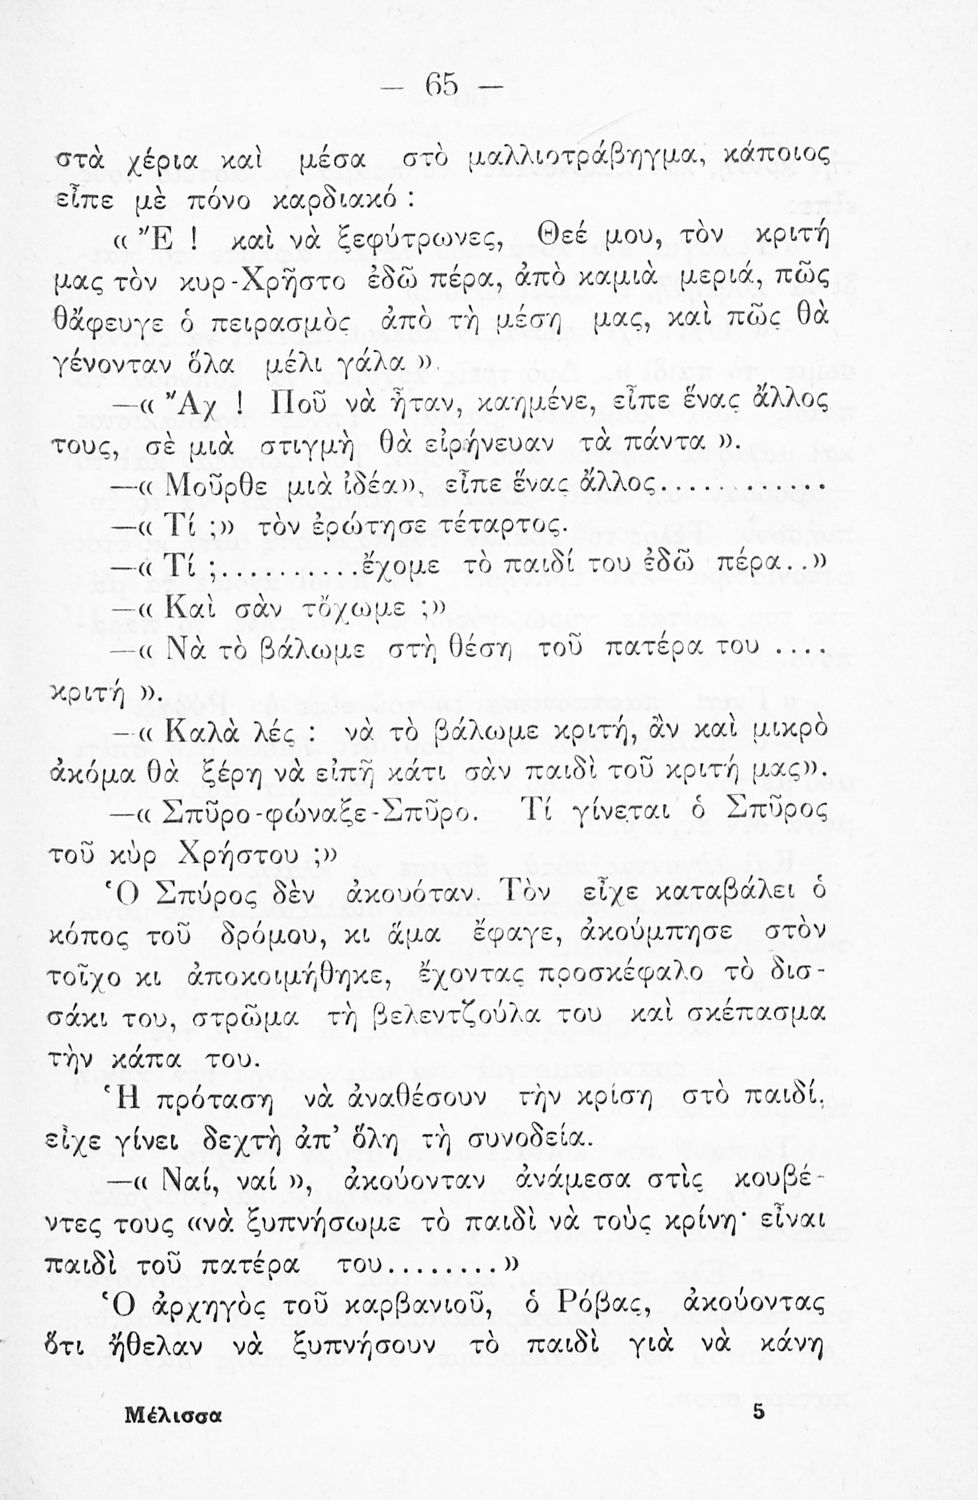 — 65 —
στὰ χέρια καὶ μέσα στὸ μαλλιοτράβηγμα, κάποιος
εἶπε μὲ πόνο καρδιακό :
« Ἔ ! καὶ νὰ ξεφύτρωνες, Θεέ μου, τὸν κριτή
μας τὸν κυρ-Χρῆστο ἐδῶ πέρα, ἀπὸ καμιὰ μεριά, πῶς
θἄφευγε ὁ πειρασμὸς ἀπὸ τὴ μέση μας, καὶ πῶς θὰ
γένονταν ὅλα μέλι γάλα ».
—« Ἄχ ! Ποῦ νὰ ἦταν, καημένε, εἶπε ἕνας ἄλλος
τους, σὲ μιὰ στιγμὴ θὰ εἰρήνευαν τὰ πάντα ».
—« Μοῦρθε μιὰ ἰδέα», εἶπε ἕνας ἄλλος...........
—« Τί ;» τὸν ἐρώτησε τέταρτος.
—« Τί ;..........ἔχομε τὸ παιδί του ἐδῶ πέρα..»
—« Καὶ σὰν τὄχωμε ;»
—« Νὰ τὸ βάλωμε στὴ θέση τοῦ πατέρα του ....
κριτή ».
—« Καλὰ λές : νὰ τὸ βάλωμε κριτή, ἂν καὶ μικρὸ
ἀκόμα θὰ ξέρη νὰ εἰπῆ κάτι σὰν παιδὶ τοῦ κριτή μας».
—« Σπῦρο-φώναξε-Σπῦρο. Τί γίνεται ὁ Σπῦρος
τοῦ κὺρ Χρήστου ;»
Ὁ Σπύρος δὲν ἀκουόταν. Τὸν εἶχε καταβάλει ὁ
κόπος τοῦ δρόμου, κι ἅμα ἔφαγε, ἀκούμπησε στὸν
τοῖχο κι ἀποκοιμήθηκε, ἔχοντας προσκέφαλο τὸ δισ-
σάκι του, στρῶμα τὴ βελεντζούλα του καὶ σκέπασμα
τὴν κάπα του.
Ἡ πρόταση νὰ ἀναθέσουν τὴν κρίση στὸ παιδί,
εἶχε γίνει δεχτὴ ἀπ' ὅλη τὴ συνοδεία.
—« Ναί, ναί », ἀκούονταν ἀνάμεσα στὶς κουβέ-
ντες τους «νὰ ξυπνήσωμε τὸ παιδὶ νὰ τοὺς κρίνη· εἶναι
παιδὶ τοῦ πατέρα του........»
Ὁ ἀρχηγὸς τοῦ καρβανιοῦ, ὁ Ρόβας, ἀκούοντας
ὅτι ἤθελαν νὰ ξυπνήσουν τὸ παιδὶ γιὰ νὰ κάνη
Μέλισσα 5